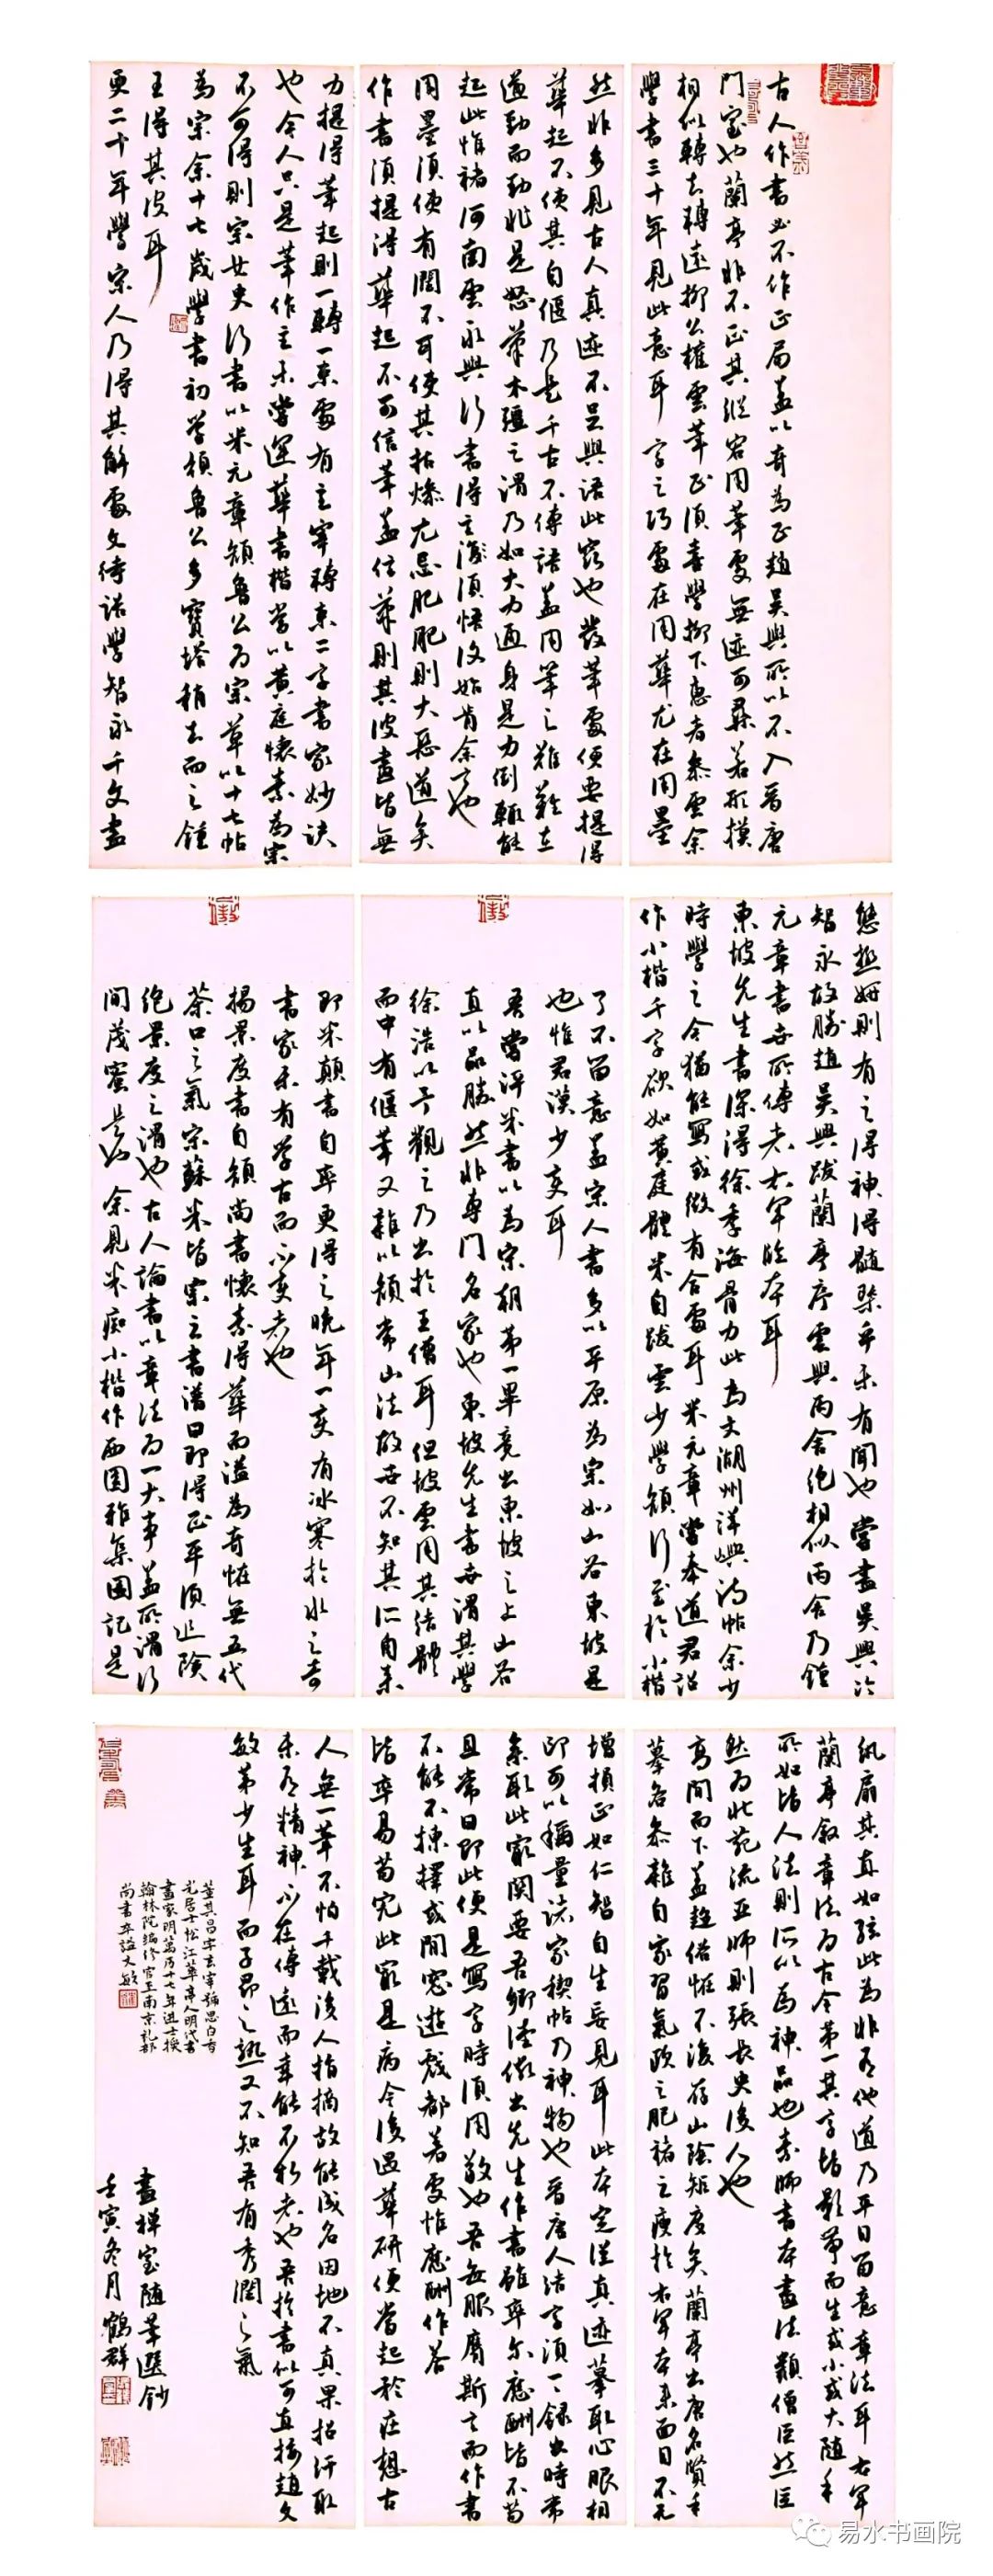 古人作書必不作正局蓋以奇為正趙吳興所以不入晉唐
門室也蘭亭非不正其縱宕用筆處無迹可尋若形模
相似轉去轉遠柳公權雲筆正須善學柳下惠者參雲余
學書三十年見此意耳 字之巧處在用筆尤在用墨
然非多見古人真迹不足與語此竅也發筆處便要提得
筆起不使其自偃乃是千古不傳語蓋用筆之難難在
遒勁而勁非是怒筆木彊之謂乃如大力通身是力倒輒能
起此惟褚河南雲永興行書得之須悟後始肯余言也
用墨須使有潤不可使其枯燥尤忌肥肥則大惡道矣
作書須提得筆起不可信筆蓋信筆則其波畫皆無
力提得筆起則一轉一束處有主宰轉束二字書家妙訣
也今人只是筆作主未嘗運筆書楷當以黃庭懷素為宗
不可得則宗女史行書以米元章顏魯公為宗草以十七帖
為宗余十七歲學書初學顏魯公多寶塔稍去而之鍾
王得其皮耳
更二十年學宋人乃得其解處文待詔學智永千文盡
態極妍則有之得神得髓槩乎未有聞也嘗盡吳興泠
智永故勝趙吳興跋蘭亭序雲與丙舍絶相似丙舍乃鍾
元章書世所傳者右軍臨本耳
東坡先生書深得徐季海骨力此為文湖州洋嶼詩帖余少
時學之今猶能寫或微有合處耳米元章嘗奉道君詔
作小楷千字欲如黃庭體米自跋雲少學顏行至於小楷
了不留意蓋宋人書多以平原為宗如山谷東坡是
也惟君謨少變耳
吾嘗評米書以為宋朝第一畢竟出東坡之上山谷
直以品勝然非專門名家也東坡先生書世謂其學
徐浩以予觀之乃出於王僧耳但坡雲用其結體
而中有偃筆又雜以顏常山法故世不知其所自來
即米顛書自率更得之晚年一變有冰寒於水之奇
書家未有學古而不變者也
楊景度書自顏尚書懷素得筆而溢為奇怪無五代
茶口之氣宋蘇米皆宗之書譜曰既得正平須追險
絶景度之謂也古人論書以章法為一大事蓋所謂行
間茂蜜是也 余見米癡小楷作西園雅集圖記是
紈扇其直如弦此為非有他道乃平日留意章法耳右軍
蘭亭敘章法為古今第一其字皆影帶而生或小或大隨手
所如皆入法則所以為神品也素師書本畫法類僧巨然巨
然為北苑流亞師則張長史後人也
高間而下蓋趨俗怪不復存山陰矩度矣蘭亭出唐名賢手
摹各參雜自家習氣歐之肥褚之瘦於右軍本來面目不无
增損正如仁智自生妄見耳此本定從真迹摹取心眼相
即可以稱量諸家禊帖乃神物也晉唐人結字須一一錄出時常
參取此最關要吾鄉陸儼出先生作書雖率尔應酬皆不苟
且常曰即此便是寫字時須用敬也吾每服膺斯言而作書
不能不揀擇或閒窓遊戲都著處惟應酬作荅
皆率易苟完此最是病今後遇筆研便當起矜莊想古
人無一筆不怕千載後人指摘故能成名因地不真果招汙取
未有精神不在傳遠而幸能不朽者也吾於書似可直接趙文
敏第少生耳而子昂之熟又不知吾有秀潤之氣
董其昌字玄宰號思白香
光居士松江華亭人明代書
畫家明萬历十七年進士授
翰林院編修官至南京礼部
尚書卒謚文敏
畫禪室隨筆選鈔
壬寅冬月鶴群
易水书画院